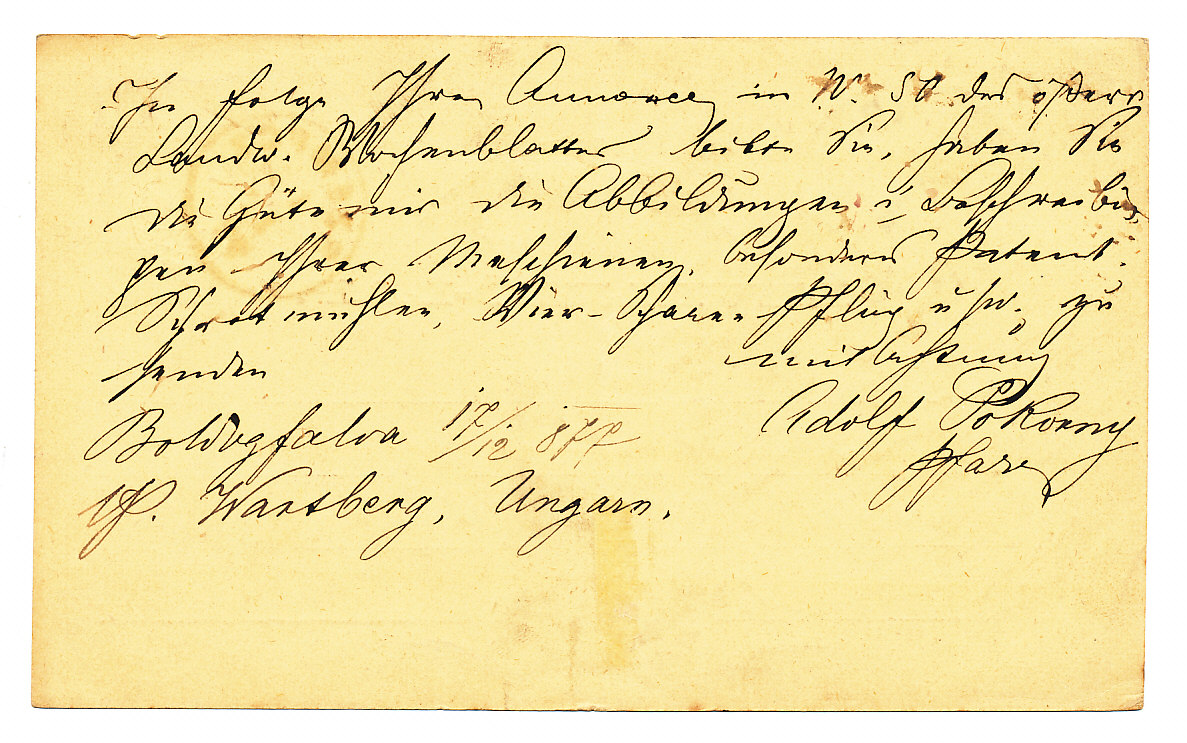 In folge Ihrer Annonce in No. 50 des österr
Landw. Wochenblattes bitte Sie, haben Sie
die Güte mir die Abbildungen u. Beschreibun-
gen Ihrer Maschienen, besonders Patent-
Schrotmühlen, Vier-Scharen Pflüg u sw. zu
senden
mit Achtung
Boldogfalva 17/12 877
Adolf Pokorny
Pfarer
lP. Wartberg, Ungarn.